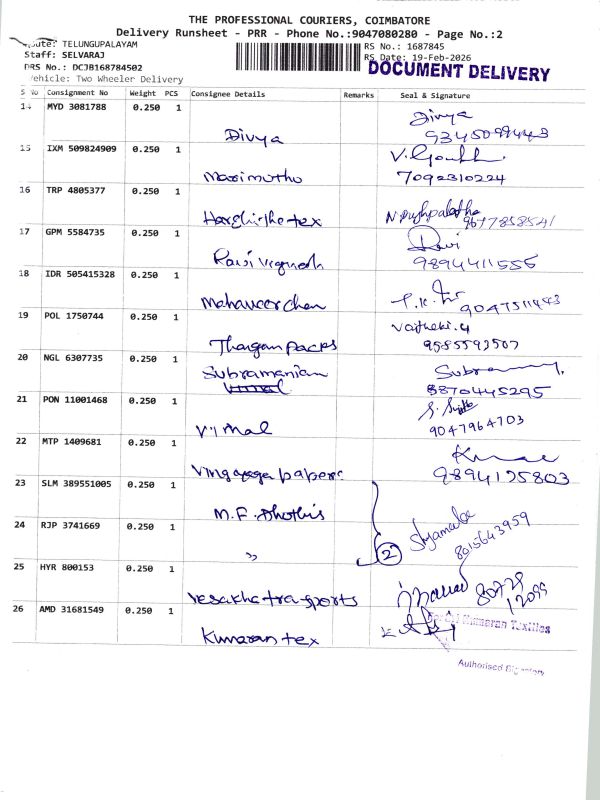 THE PROFESSIONAL COURIERS, COIMBATORE
Delivery Runsheet - PRR - Phone No.:9047080280 - Page No.:2
Route: TELUNGUPALAYAM
Staff: SELVARAJ
DRS No.: DCJB168784502
Vehicle: Two Wheeler Delivery
RS No.: 1687845
RS Date: 19-Feb-2026
DOCUMENT DELIVERY
S No Consignment No Weight PCS Consignee Details Remarks Seal & Signature
14 MYD 3081788 0.250 1 Divya Divya
15 IXM 509824909 0.250 1 Marimuthu 7092310224
16 TRP 4805377 0.250 1 tex N Pushpalatha 9677858541
17 GPM 5584735 0.250 1 Ravi Vignesh Ravi 9894411555
18 IDR 505415328 0.250 1 Mahaveerchan 9047511443
19 POL 1750744 0.250 1 Thangam packs 9585593507
20 NGL 6307735 0.250 1 Subramaniam 8870445295
21 PON 11001468 0.250 1 Vimal 9047964703
22 MTP 1409681 0.250 1 papers 9894175803
23 SLM 389551005 0.250 1 M.F. Dhothis
24 RJP 3741669 0.250 1 " 2 8015643959
25 HYR 800153 0.250 1 80729 12099
26 AMD 31681549 0.250 1 Kumaran tex
Kumaran Textiles
Authorised Signatory